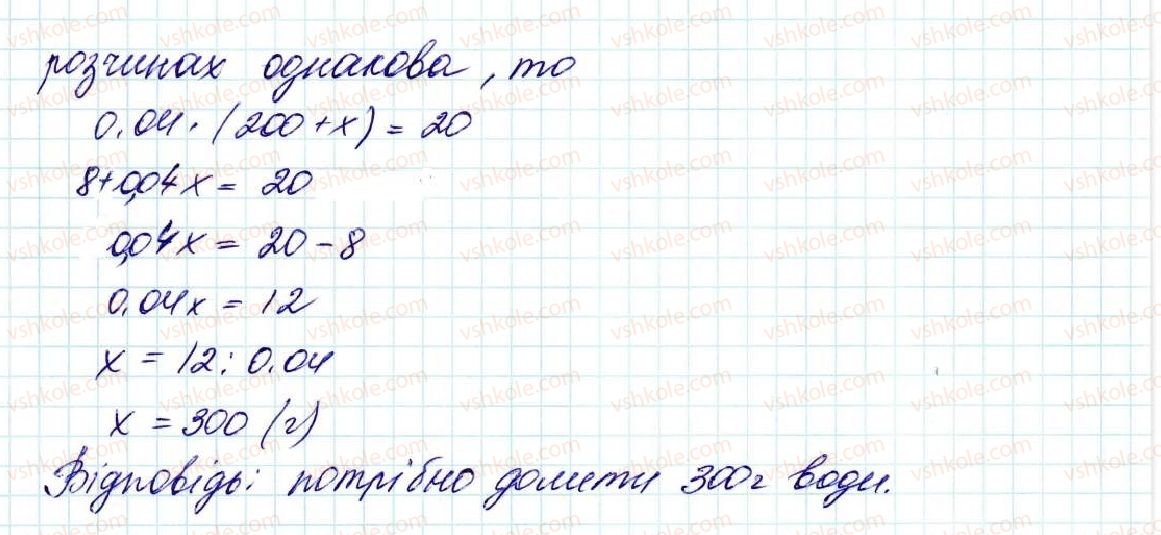 розчинах однакова, то
0.04 · (200 + x) = 20
8 + 0,04x = 20
0,04x = 20 - 8
0.04x = 12
x = 12 : 0.04
x = 300 (г)
Відповідь: потрібно долити 300г води.